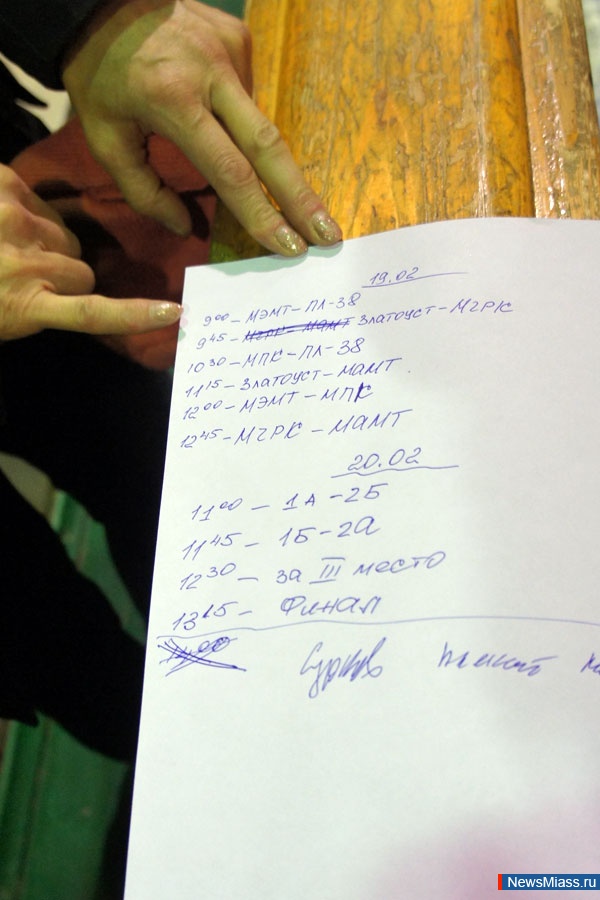 19.02
9⁰⁰ – МЭМТ – ПЛ-38
9⁴⁵ – МГРК – МАМТ Златоуст – МГРК
10³⁰ – МПК – ПЛ-38
11¹⁵ – Златоуст – МАМТ
12⁰⁰ – МЭМТ – МПК
12⁴⁵ – МГРК – МАМТ
20.02
11⁰⁰ – 1А – 2Б
11⁴⁵ – 1Б – 2А
12³⁰ – за III место
13¹⁵ – Финал
NewsMiass.ru